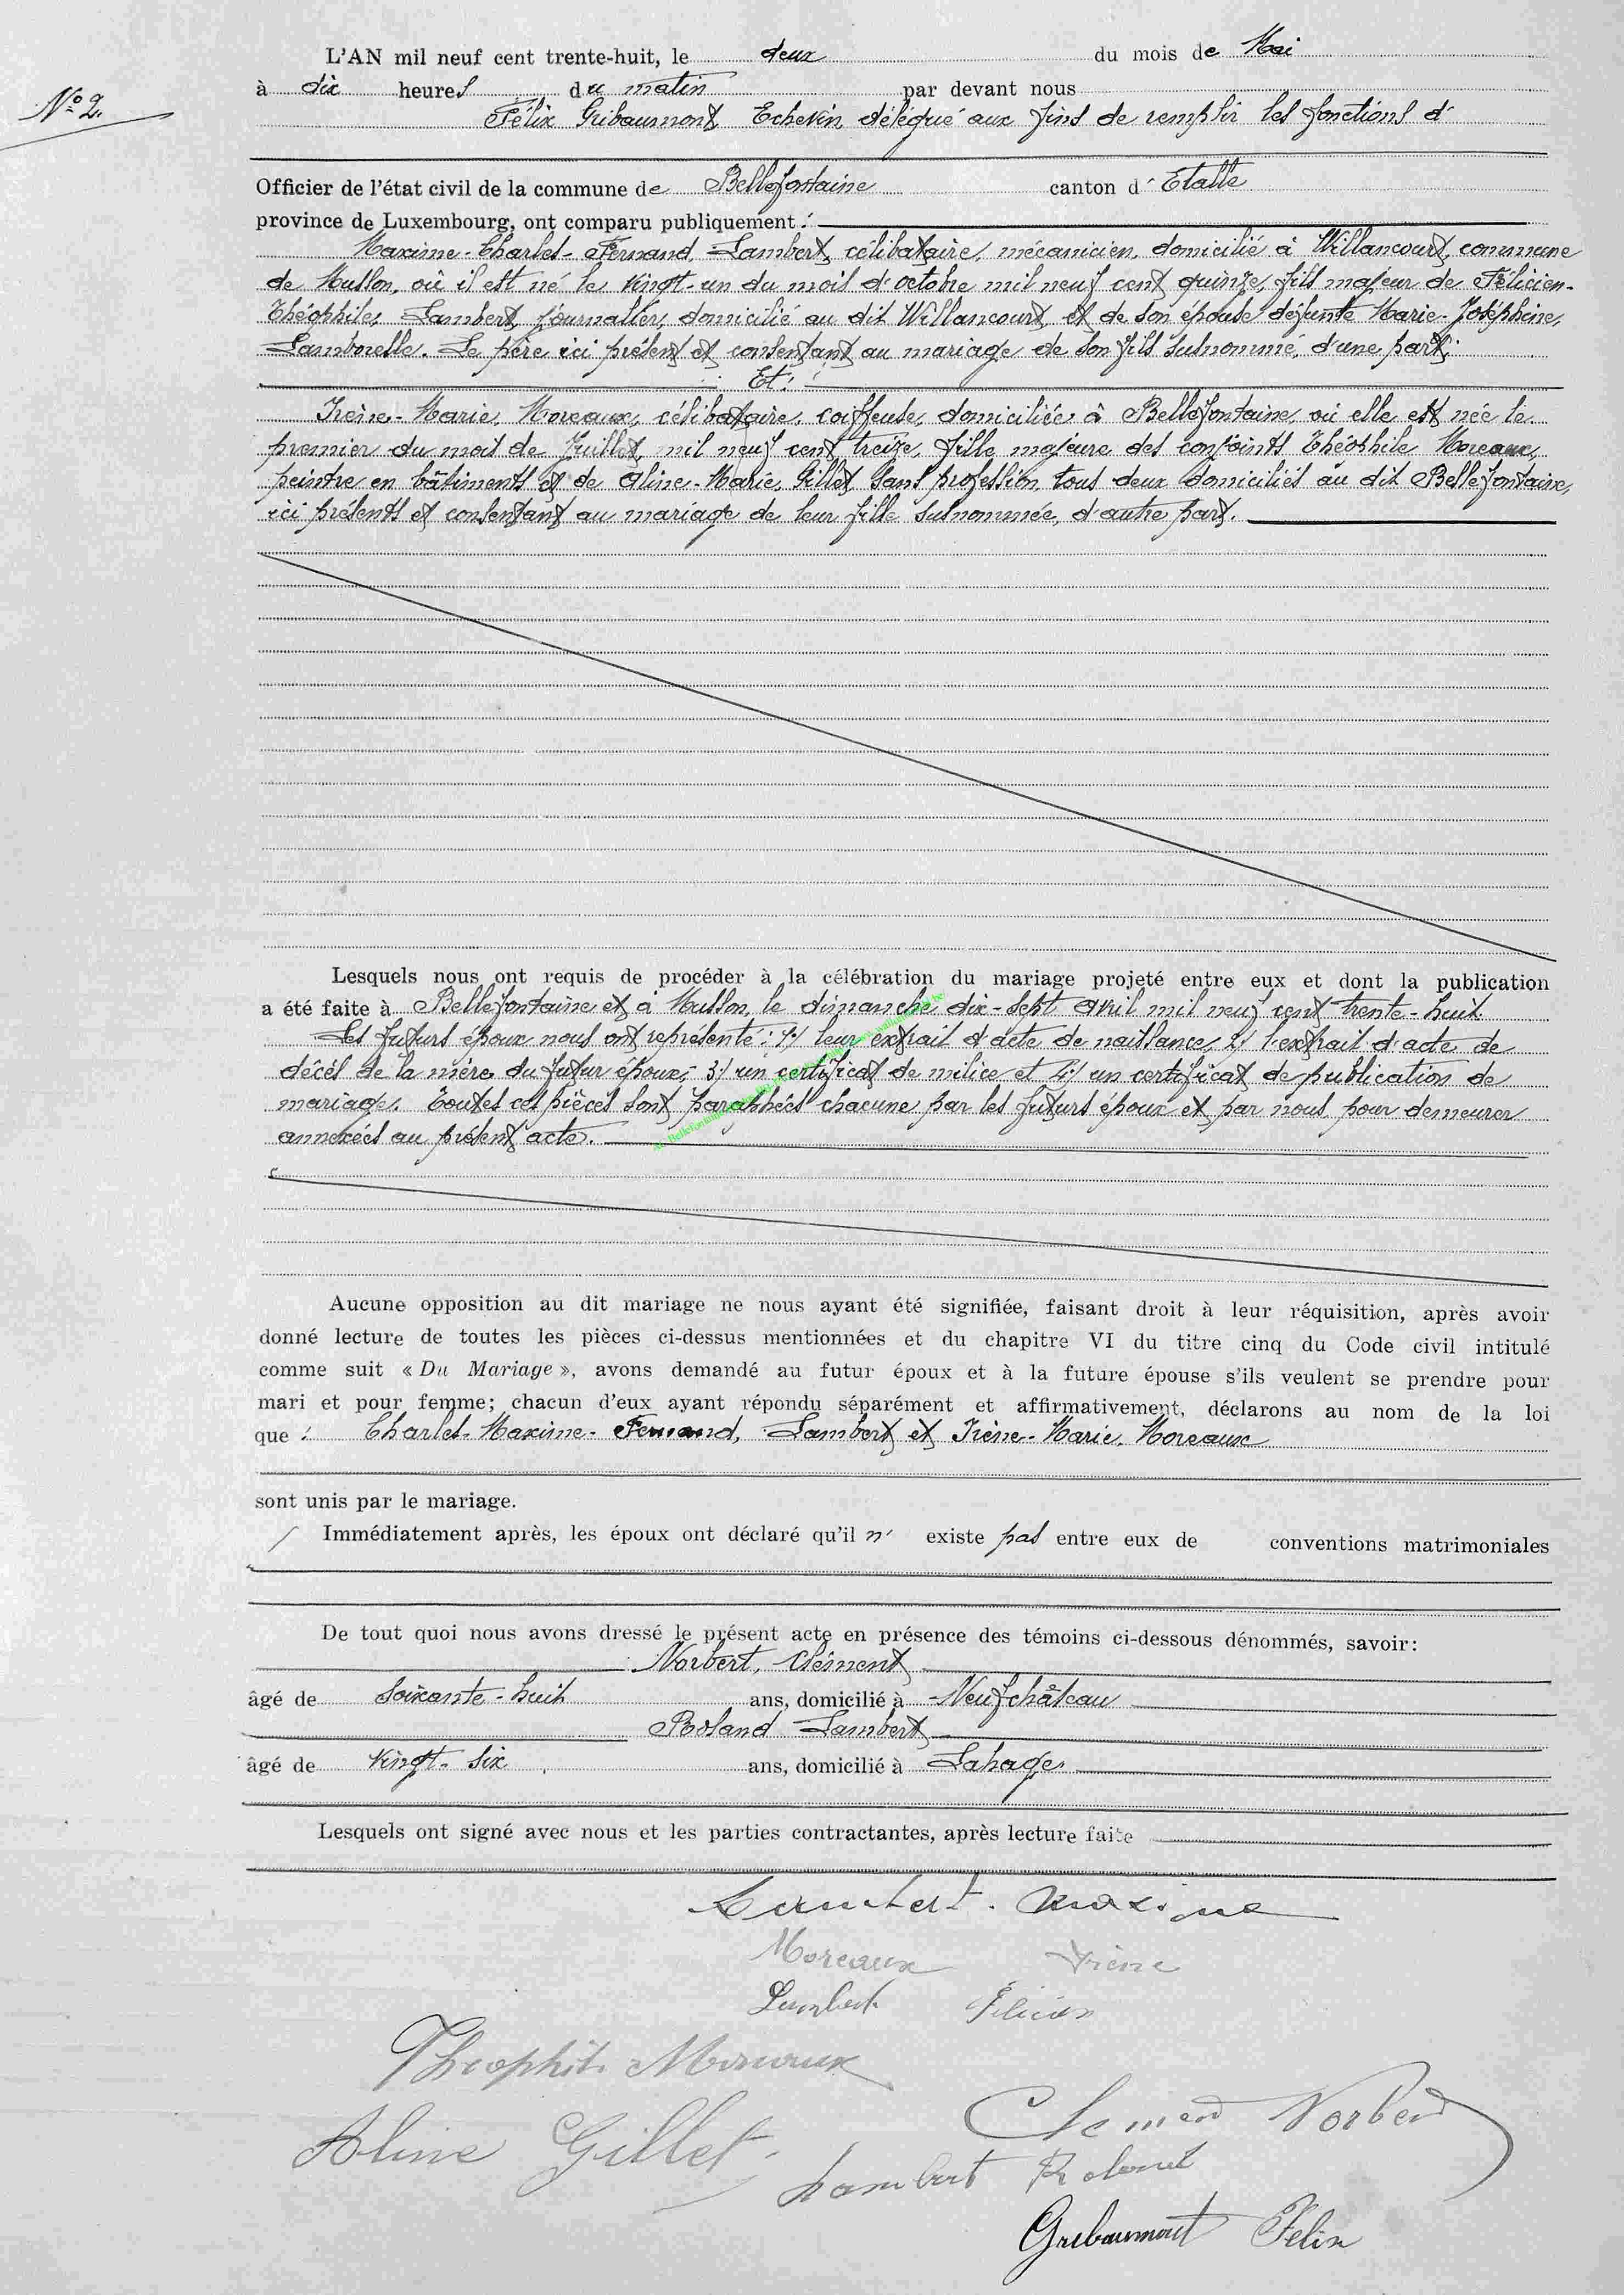 L'AN mil neuf cent trente-huit, le deux du mois de Mai
à dix heures du matin par devant nous
N° 2.
Félix Gribaumont, Echevin, délégué aux fins de remplir les fonctions d'
Officier de l'état civil de la commune de Bellefontaine canton d' Etalle
province de Luxembourg, ont comparu publiquement :
Maxime-Charles-Fernand, Lambert, célibataire, mécanicien, domicilié à Willancourt, commune
de Musson, où il est né le vingt-un du mois d'octobre mil neuf cent quinze, fils majeur de Félicien-
Théophile, Lambert, journalier, domicilié au dit Willancourt, et de son épouse défunte Marie-Joséphine,
Lamborelle. Le père ici présent et consentant au mariage de son fils susnommé, d'une part;
Et :
Irène-Marie, Moreaux, célibataire, coiffeuse, domiciliée à Bellefontaine, où elle est née le
premier du mois de Juillet, mil neuf cent treize, fille majeure des conjoints Théophile Moreaux,
peintre en bâtiments et de Aline-Marie, Gillet sans profession, tous deux domiciliés au dit Bellefontaine,
ici présents et consentant au mariage de leur fille susnommée, d'autre part.
Lesquels nous ont requis de procéder à la célébration du mariage projeté entre eux et dont la publication
a été faite à Bellefontaine et à Musson, le dimanche dix-sept avril mil neuf cent trente-huit
Les futurs époux nous ont représenté : 1/ leur extrait d'acte de naissance, 2/ l'extrait d'acte de
décès de la mère du futur époux; 3/ un certificat de milice et 4/ un certificat de publication de
mariage. Toutes ces pièces sont paraphées chacune par les futurs époux et par nous pour demeurer
annexées au présent acte.
Aucune opposition au dit mariage ne nous ayant été signifiée, faisant droit à leur réquisition, après avoir
donné lecture de toutes les pièces ci-dessus mentionnées et du chapitre VI du titre cinq du Code civil intitulé
comme suit « Du Mariage », avons demandé au futur époux et à la future épouse s'ils veulent se prendre pour
mari et pour femme; chacun d'eux ayant répondu séparément et affirmativement, déclarons au nom de la loi
que : Charles-Maxime-Fernand, Lambert et Irène-Marie, Moreaux
sont unis par le mariage.
Immédiatement après, les époux ont déclaré qu'il n' existe pas entre eux de conventions matrimoniales
De tout quoi nous avons dressé le présent acte en présence des témoins ci-dessous dénommés, savoir:
Norbert, Clément
âgé de soixante-huit ans, domicilié à Neufchâteau
Roland Lambert
âgé de vingt-six ans, domicilié à Lahage
Lesquels ont signé avec nous et les parties contractantes, après lecture faite
Lambert. Maxime
Moreaux Irène
Lambert Félicien
Théophile Moreaux
Clement Norbert
Aline Gillet
Lambert Roland
Gribaumont Félix